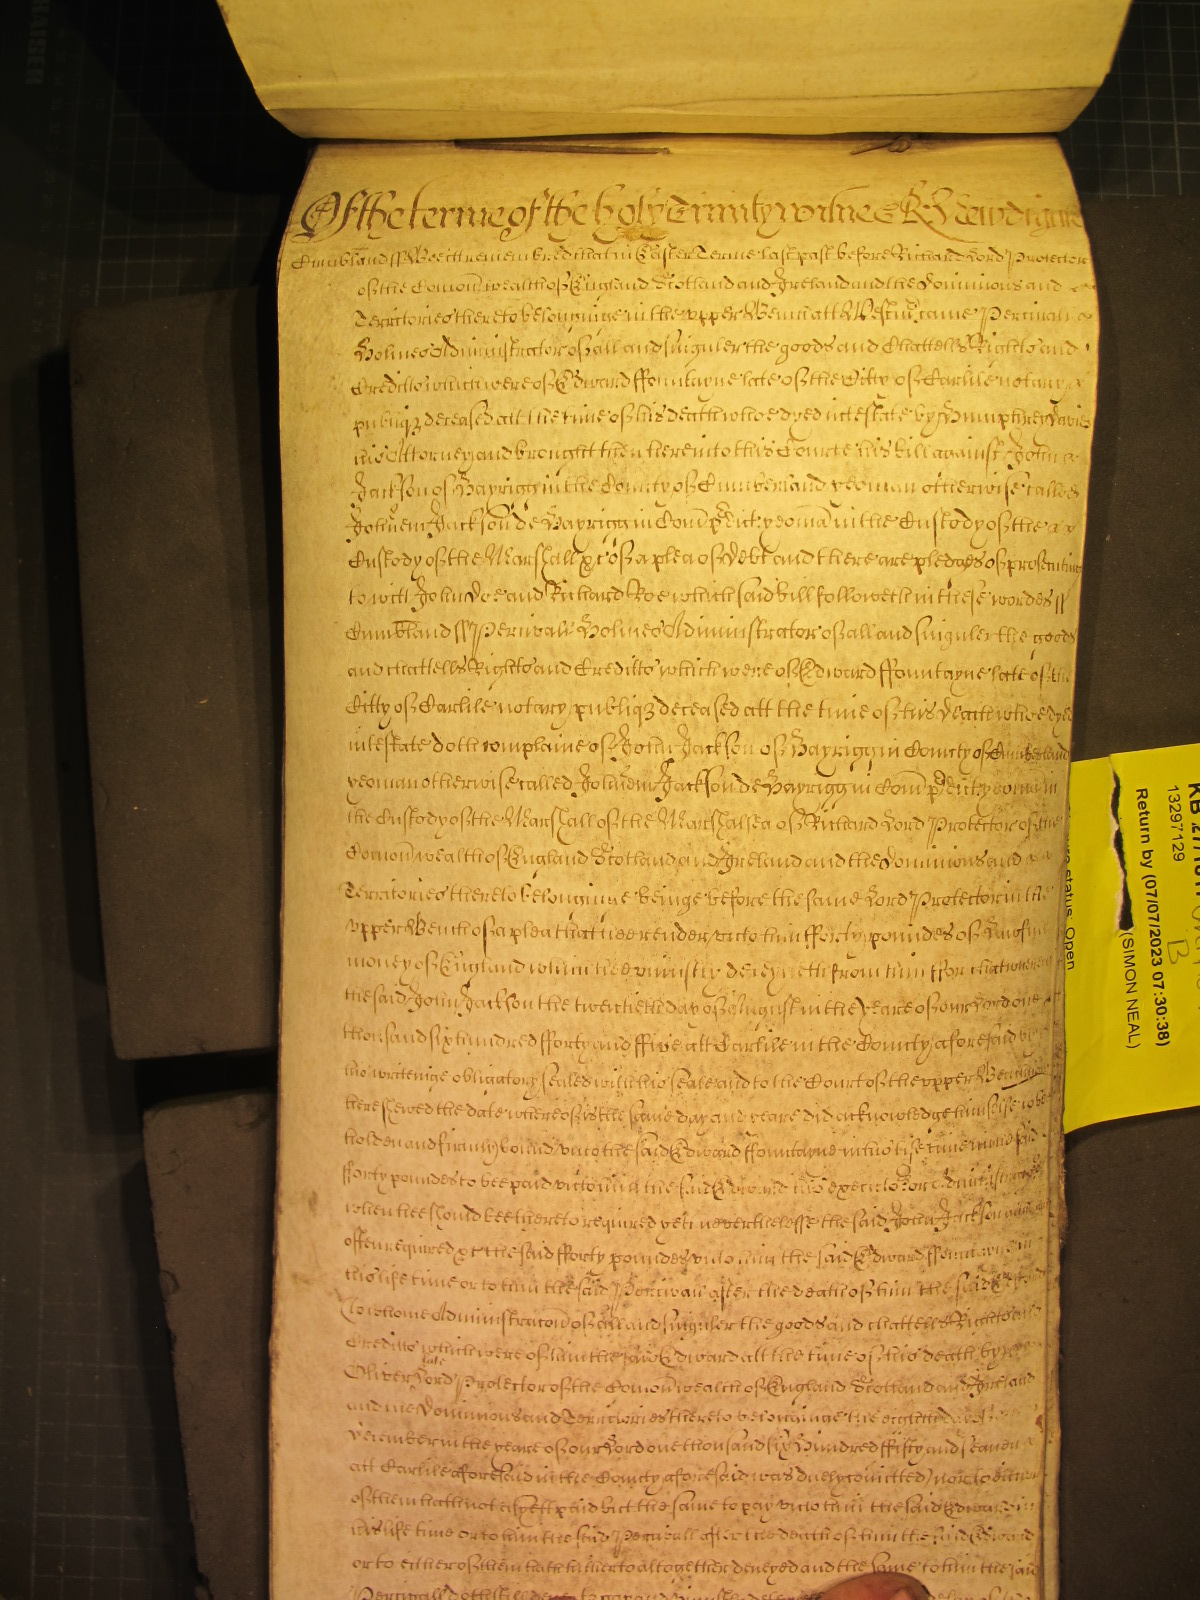 Of the terme of the holy Trinity witnes R Newdigate
Cumbland ss Bee itt remembred that in Easter Terme last past before Richard Lord Protector
of the Comon wealth of England Scotland and Ireland and the Dominions and
Territories thereto belonginge in the upper Bench att Westmr came Percivall
Holmes Administrator of all and singuler the goods and Chattells Rights and
Creditts which were of Edward ffountayne late of the Citty of Carlile notary
publiq deceased att the time of his death whoe dyed intestate by Humphrey Davies
his Attorney and brought then here into this Courte his bill against John
Jackson of Hayrigg in the County of Cumberland yeoman otherwise called
Johnem Jackson de Hayrigg in Com pdict yeoman in the Custody of the
Custody of the Marshall &c of a plea of Debt and there are pledges of prosecuting
to witt John Doe and Richard Roe which said bill followeth in these wordes ss
Cumbland ss Percivall Holmes Administrator of all and singuler the goods
and chattells Rights and Creditts which were of Edward ffountayne late of the
Citty of Carlile notary publiq deceased att the time of his death whoe dyed
intestate doth complaine of John Jackson of Hayrigg in County of Cumberland
yeoman otherwise called Johnem Jackson de Hayrigg in Com pdict yeoman in
the Custody of the Marshall of the Marshalsea of Richard Lord Protector of the
Comon wealth of England Scotland and Ireland and the Dominions and
Territories thereto belonginge beinge before the same Lord Protector in the
upper Bench of a plea that hee render unto him fforty poundes of lawfull
money of England which hee uniustly deteyneth from him ffor that whereas
the said John Jackson the twentieth day of August in the yeare of our Lord one
thousand six hundred fforty and ffive att Carlile in the County aforesaid by
his writeinge obligatory sealed with his seale and to the Court of the upper Bench
here shewed the date whereof is the same day and yeare did acknowledge himselfe to be
holden and firmely bound unto the said Edward ffountayne in his life time in the said
fforty poundes to bee paid unto him the said Edward his executors or administrators
when hee should bee thereto required yett neverthelesse the said John Jackson although
often required &c the said fforty poundes unto him the said Edward ffountayne in
his life time or to him the said Percivall after the death of him the said Edward
(to whome Administracon of all and singuler the goods and chattells Rights and
Creditts which were of him the said Edward att the time of his death by
Oliver late Lord Protector of the Comon wealth of England Scotland and Ireland
and the Dominions and Territories thereto belonginge the eighth day of
December in the yeare of our Lord one thousand six Hundred ffifty and seaven
att Carlile aforesaid in the County aforesaid was duely comitted) nor to either
of them hath not as yett paid but the same to pay unto him the said Edward in
his life time or to him the said Percivall after the death of him the said Edward
or to either of them hath hitherto altogether denyed and the same to him the said
Percivall doth still deny
KB 27/
13297129
Return by (07/07/2023 07:30:38)
(SIMON NEAL)
status: Open
B